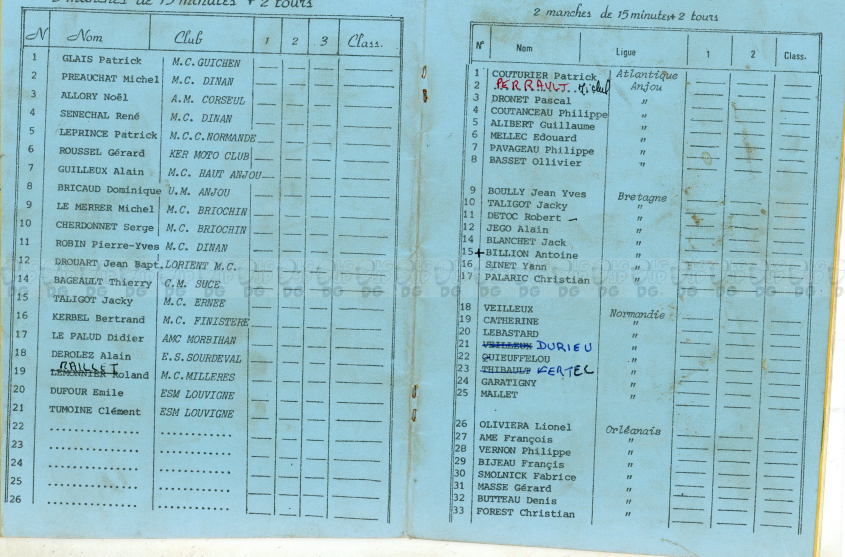 3 manches de 15 minutes + 2 tours
N Nom Club 1 2 3 Class.
1 GLAIS Patrick M.C.GUICHEN
2 PREAUCHAT Michel M.C. DINAN
3 ALLORY Noël A.M. CORSEUL
4 SENECHAL René M.C. DINAN
5 LEPRINCE Patrick M.C.C.NORMANDE
6 ROUSSEL Gérard KER MOTO CLUB
7 GUILLEUX Alain M.C. HAUT ANJOU
8 BRICAUD Dominique U.M. ANJOU
9 LE MERRER Michel M.C. BRIOCHIN
10 CHERDONNET Serge M.C. BRIOCHIN
11 ROBIN Pierre-Yves M.C. DINAN
12 DROUART Jean Bapt. LORIENT M.C.
14 BAGEAULT Thierry C.M. SUCE
15 TALIGOT Jacky M.C. ERNEE
16 KERBEL Bertrand M.C. FINISTERE
17 LE PALUD Didier AMC MORBIHAN
18 DEROLEZ Alain E.S.SOURDEVAL
RAILLET
19 LEMONNIER Roland M.C.MILLERES
20 DUFOUR Emile ESM LOUVIGNE
21 TUMOINE Clément ESM LOUVIGNE
22 .............. ..............
23 .............. ..............
24 .............. ..............
25 .............. ..............
26 .............. ..............
2 manches de 15 minutes+ 2 tours
N° Nom Ligue 1 2 Class.
1 COUTURIER Patrick Atlantique
2 PERRAULT Michel Anjou
3 DRONET Pascal "
4 COUTANCEAU Philippe "
5 ALIBERT Guillaume "
6 MELLEC Edouard "
7 PAVAGEAU Philippe "
8 BASSET Ollivier "
9 BOULLY Jean Yves Bretagne
10 TALIGOT Jacky "
11 DETOC Robert "
12 JEGO Alain "
14 BLANCHET Jack "
15 + BILLION Antoine "
16 SINET Yann "
17 PALARIC Christian "
18 VEILLEUX Normandie
19 CATHERINE "
20 LEBASTARD "
21 VEILLEUX DURIEU "
22 QUIEUFFELOU "
23 THIBAULT KERTEC "
24 GARATIGNY "
25 MALLET "
26 OLIVIERA Lionel Orléanais
27 AME François "
28 VERNON Philippe "
29 BIJEAU Françis "
30 SMOLNICK Fabrice "
31 MASSE Gérard "
32 BUTTEAU Denis "
33 FOREST Christian "